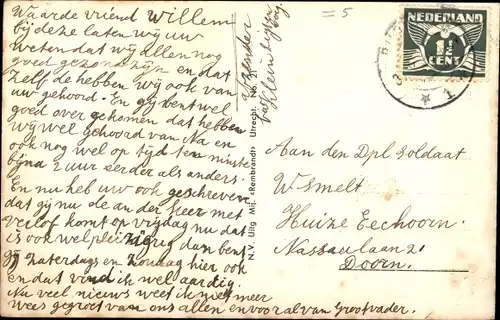 Waarde vriend Willem
bij deze laten wij uw
weten dat wij allen nog
goed gezond zijn en dat
zelfde hebben wij ook van
uw gehoord. En gij bent wel
goed over gekomen dat hebben
wij wel gehoord van Na en
ook nog wel op tijd ten minste
bijna 2 uur eerder als anders.
En nu heb uw ook geschreven
dat gij nu de an der heer met
verlof komt op vrijdag nu dat
is ook wel plezierig dan bent
gij Zaterdags en Zondag hier ook
en dat vind ik wel aardig.
Nu veel nieuws weet ik niet meer
wees gegroet van ons allen en vooral van Grootvader.
Afzender
N.V. Uitg. Mij. «Rembrandt» Utrecht. No. 21
= 5
NEDERLAND
1½
CENT
1
Aan den Dpl Soldaat
W Smelt
Huize Eechoorn.
Nassaulaan 21
Doorn.